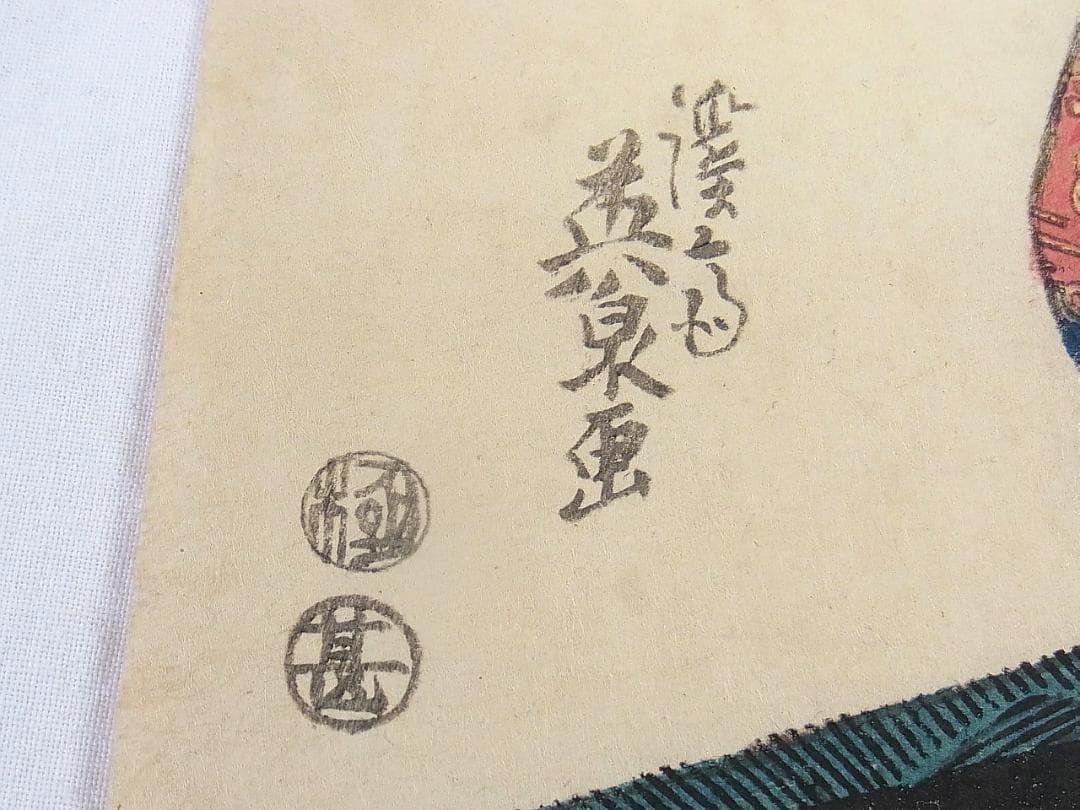 渓斎
英泉画
極
甚